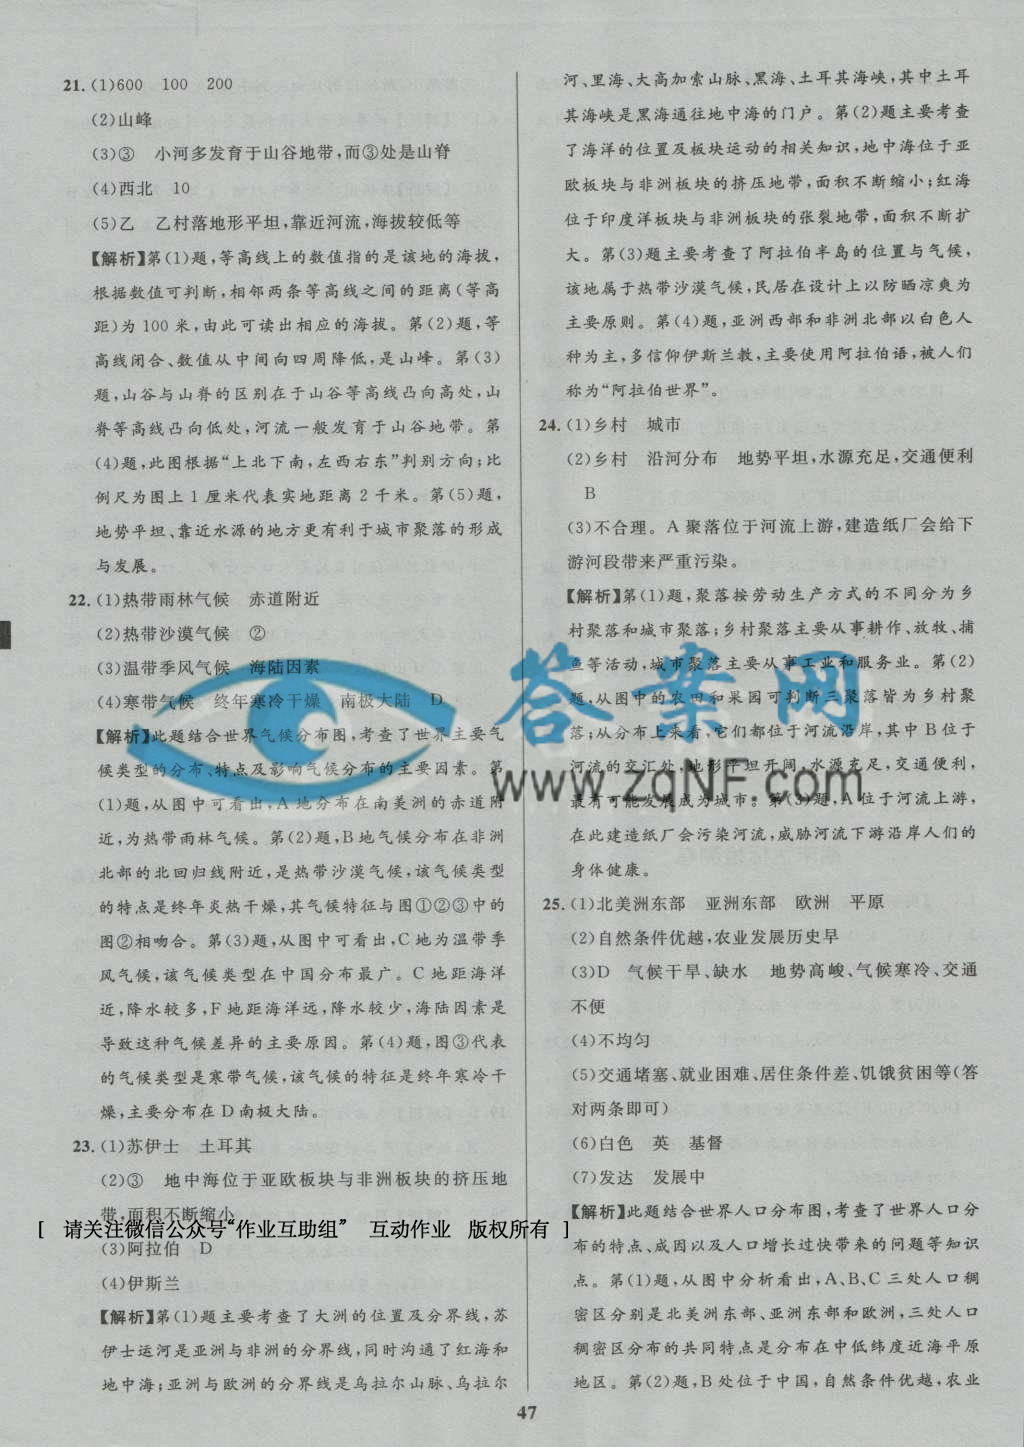 21. (1)600　100　200
(2)山峰
(3)③　小河多发育于山谷地带,而③处是山脊
(4)西北　10
(5)乙　乙村落地形平坦,靠近河流,海拔较低等
【解析】第(1)题,等高线上的数值指的是该地的海拔,
根据数值可判断,相邻两条等高线之间的距离(等高
距)为 100 米,由此可读出相应的海拔。第(2)题,等
高线闭合、数值从中间向四周降低,是山峰。第(3)
题,山谷与山脊的区别在于山谷等高线凸向高处,山
脊等高线凸向低处,河流一般发育于山谷地带。第
(4)题,此图根据“上北下南,左西右东”判别方向;比
例尺为图上 1 厘米代表实地距离 2 千米。第(5)题,
地势平坦、靠近水源的地方更有利于城市聚落的形成
与发展。
22. (1)热带雨林气候　赤道附近
(2)热带沙漠气候　②
(3)温带季风气候　海陆因素
(4)寒带气候　终年寒冷干燥　南极大陆　D
【解析】此题结合世界气候分布图,考查了世界主要气
候类型的分布、特点及影响气候分布的主要因素。第
(1)题,从图中可看出,A 地分布在南美洲的赤道附
近,为热带雨林气候。第(2)题,B 地气候分布在非洲
北部的北回归线附近,是热带沙漠气候,该气候类型
的特点是终年炎热干燥,其气候特征与图①②③中的
图②相吻合。第(3)题,从图中可看出,C 地为温带季
风气候,该气候类型在中国分布最广。C 地距海洋
近,降水较多,F 地距海洋远,降水较少,海陆因素是
导致这种气候差异的主要原因。第(4)题,图③代表
的气候类型是寒带气候,该气候的特征是终年寒冷干
燥,主要分布在 D 南极大陆。
23. (1)苏伊士　土耳其
(2)③　地中海位于亚欧板块与非洲板块的挤压地
带,面积不断缩小
[　请关注微信公众号“作业互助组”　互动作业　版权所有　]
(3)阿拉伯　D
(4)伊斯兰
【解析】第(1)题主要考查了大洲的位置及分界线,苏
伊士运河是亚洲与非洲的分界线,同时沟通了红海和
地中海;亚洲与欧洲的分界线是乌拉尔山脉、乌拉尔
河、里海、大高加索山脉、黑海、土耳其海峡,其中土耳
其海峡是黑海通往地中海的门户。第(2)题主要考查
了海洋的位置及板块运动的相关知识,地中海位于亚
欧板块与非洲板块的挤压地带,面积不断缩小;红海
位于印度洋板块与非洲板块的张裂地带,面积不断扩
大。第(3)题主要考查了阿拉伯半岛的位置与气候,
该地属于热带沙漠气候,民居在设计上以防晒凉爽为
主要原则。第(4)题,亚洲西部和非洲北部以白色人
种为主,多信仰伊斯兰教,主要使用阿拉伯语,被人们
称为“阿拉伯世界”。
24. (1)乡村　城市
(2)乡村　沿河分布　地势平坦,水源充足,交通便利
B
(3)不合理。A 聚落位于河流上游,建造纸厂会给下
游河段带来严重污染。
【解析】第(1)题,聚落按劳动生产方式的不同分为乡
村聚落和城市聚落;乡村聚落主要从事耕作、放牧、捕
鱼等活动,城市聚落主要从事工业和服务业。第(2)
题,从图中的农田和果园可判断三聚落皆为乡村聚
落;从分布上来看,它们都位于河流沿岸,其中 B 位于
河流的交汇处,地形平坦开阔,水源充足,交通便利,
最有可能发展成为城市。第(3)题,A 位于河流上游,
在此建造纸厂会污染河流,威胁河流下游沿岸人们的
身体健康。
25. (1)北美洲东部　亚洲东部　欧洲　平原
(2)自然条件优越,农业发展历史早
(3)D　气候干旱、缺水　地势高峻、气候寒冷、交通
不便
(4)不均匀
(5)交通堵塞、就业困难、居住条件差、饥饿贫困等(答
对两条即可)
(6)白色　英　基督
(7)发达　发展中
【解析】此题结合世界人口分布图,考查了世界人口分
布的特点、成因以及人口增长过快带来的问题等知识
点。第(1)题,从图中分析看出,A、B、C 三处人口稠
密区分别是北美洲东部、亚洲东部和欧洲,三处人口
稠密区分布的共同特点是分布在中低纬度近海平原
地区。第(2)题,B 处位于中国,自然条件优越,农业
答案网
www.zqNF.com
47